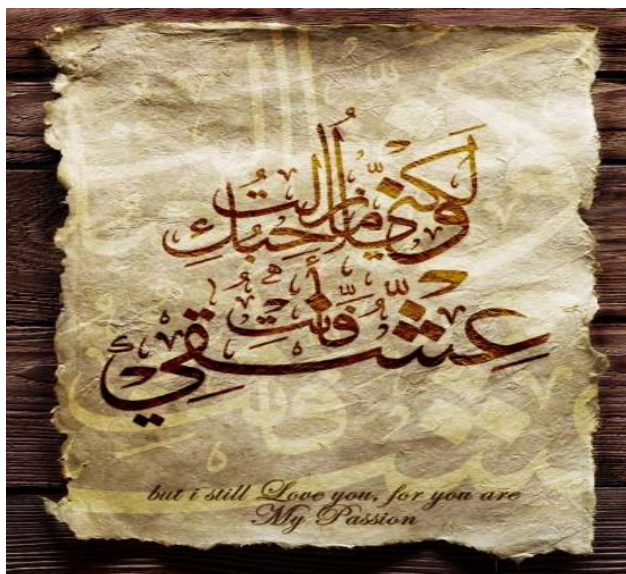 ولكني مازلت أحبك
فأنت
عشقي
but i still Love you, for you are
My Passion